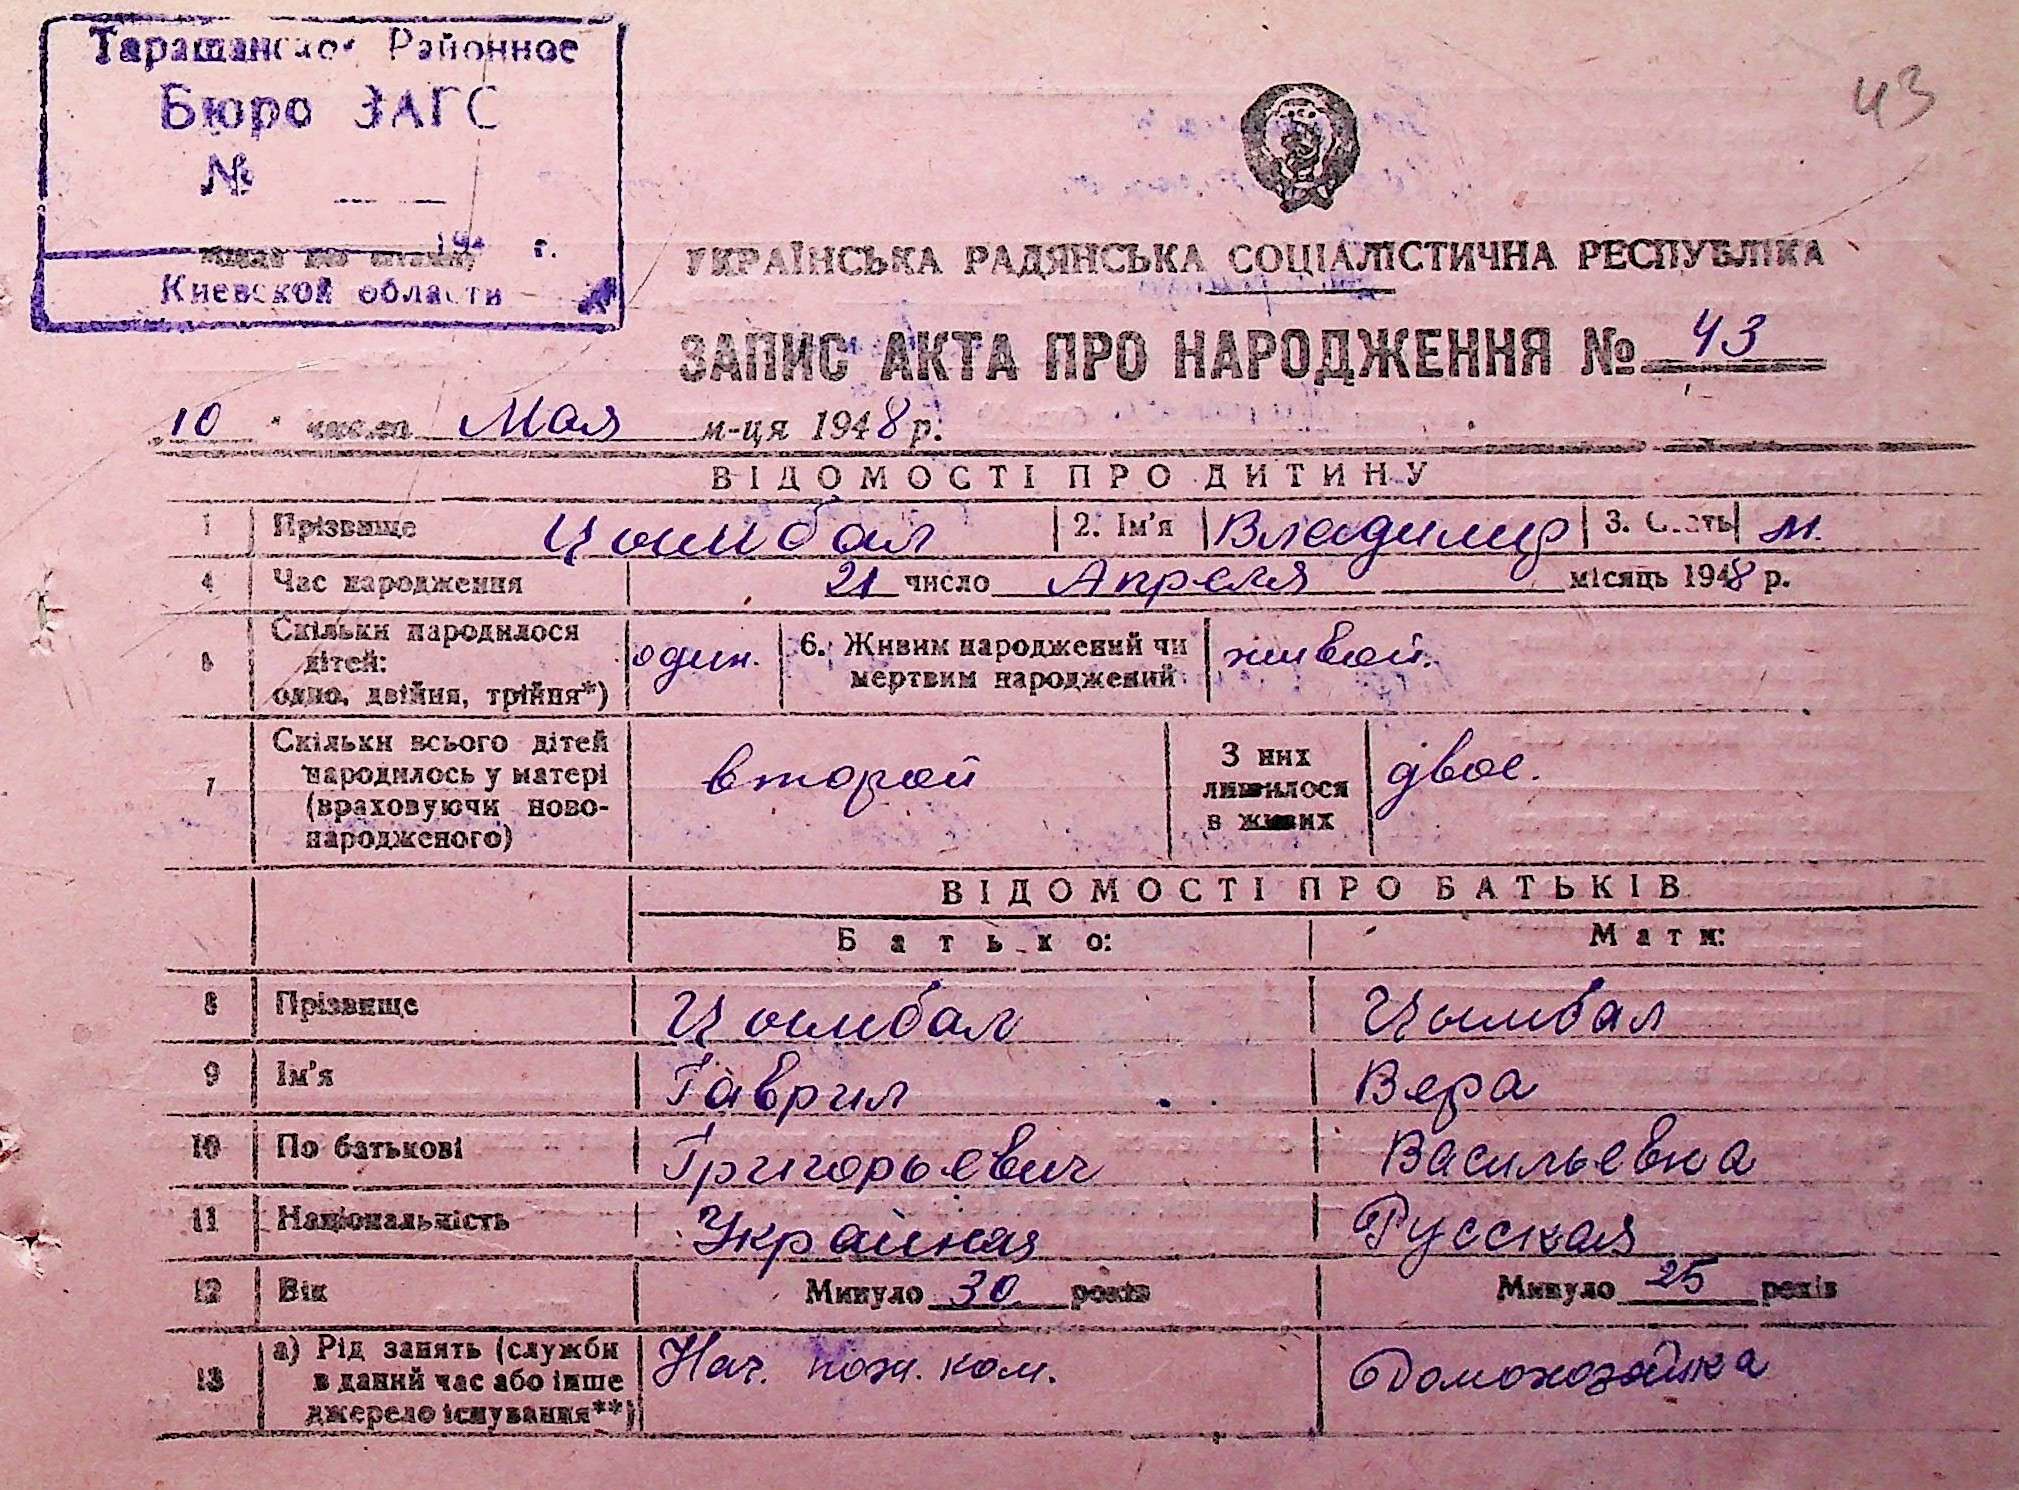 Таращанское Районное
Бюро ЗАГС
№
194 г.
Киевской области
43
УКРАЇНСЬКА РАДЯНСЬКА СОЦІАЛІСТИЧНА РЕСПУБЛІКА
ЗАПИС АКТА ПРО НАРОДЖЕННЯ № 43
10 числа Мая м-ця 1948 р.
ВІДОМОСТІ ПРО ДИТИНУ
1 Прізвище Цымбал 2. Ім'я Владимир 3. Стать м.
4 Час народження 21 число Апреля місяць 1948 р.
5 Скільки народилося дітей: одно, двійня, трійня*) один. 6. Живим народжений чи мертвим народжений живой.
7 Скільки всього дітей народилось у матері (враховуючи новонародженого) второй З них лишилося в живих двое.
ВІДОМОСТІ ПРО БАТЬКІВ
Батько: Мати:
8 Прізвище Цымбал Цымбал
9 Ім'я Гаврил Вера
10 По батькові Григорьевич Васильевна
11 Національність Украиная Русская
12 Вік Минуло 30 років Минуло 25 років
13 а) Рід занять (служби в даний час або інше джерело існування**) Нач. пож. ком. Домохозяйка